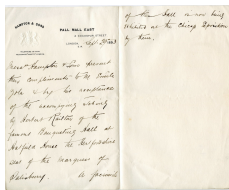 HAMPTON & SONS
PALL MALL EAST
LONDON
Messrs Hampton & Sons present
their compliments to M. Emile
Zola & beg his acceptance
of the accompanying etching
by Herbert Railton of the
famous Banqueting Hall at
Hatfield House the Hertfordshire
seat of the Marquess of
Salisbury. A facsimile
of this Hall is now being
exhibited at the Chicago Exhibition
by them.